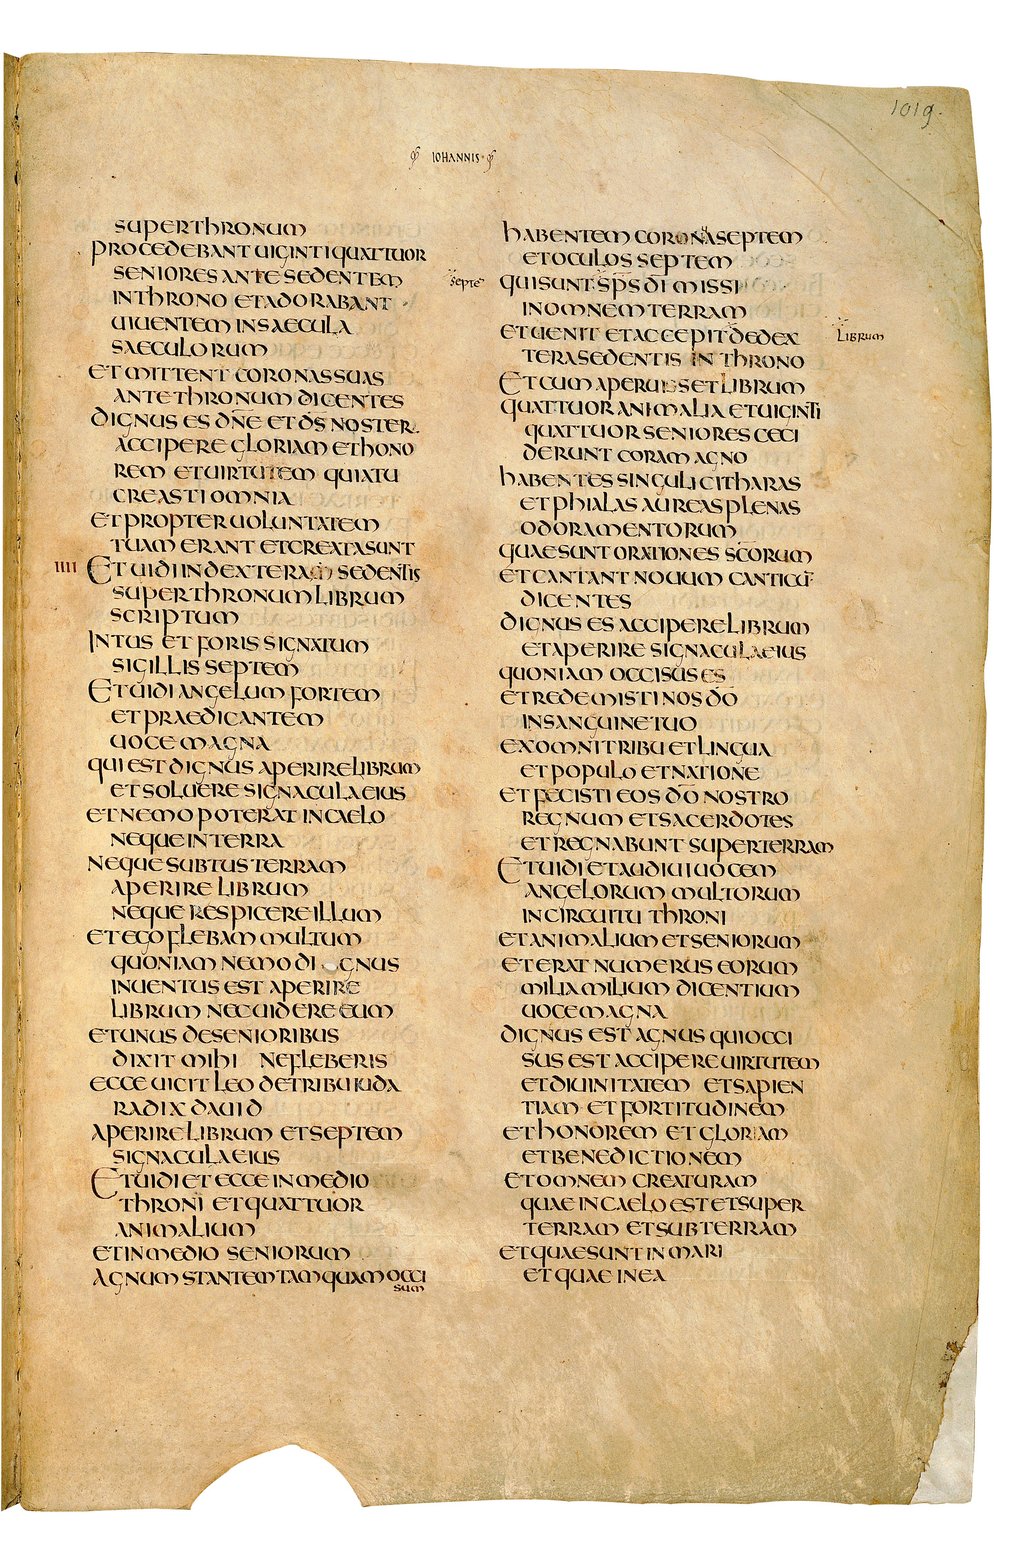 1019.
IOHANNIS
super thronum
procedebant uiginti quattuor
seniores ante sedentem
in throno et adorabant
uiuentem in saecula
saeculorum
et mittent coronas suas
ante thronum dicentes
dignus es dn̄e et ds̄ noster
accipere gloriam et hono
rem et uirtutem quia tu
creasti omnia
et propter uoluntatem
tuam erant et creata sunt
IIII Et uidi in dexteram sedentis
super thronum librum
scriptum
intus et foris signatum
sigillis septem
Et uidi angelum fortem
et praedicantem
uoce magna
qui est dignus aperire librum
et soluere signacula eius
et nemo poterat in caelo
neque in terra
neque subtus terram
aperire librum
neque respicere illum
et ego flebam multum
quoniam nemo dignus
inuentus est aperire
librum nec uidere eum
et unus de senioribus
dixit mihi ne fleberis
ecce uicit leo de tribu iuda
radix dauid
aperire librum et septem
signacula eius
Et uidi et ecce in medio
throni et quattuor
animalium
et in medio seniorum
agnum stantem tamquam occi
sum
habentem cornua septem
et oculos septem
septe
qui sunt sp̄s dī missi
in omnem terram
et uenit et accepit de dex
librum
tera sedentis in throno
Et cum aperuisset librum
quattuor animalia et uiginti
quattuor seniores ceci
derunt coram agno
habentes singuli citharas
et phialas aureas plenas
odoramentorum
quae sunt orationes sc̄orum
et cantant nouum canticū
dicentes
dignus es accipere librum
et aperire signacula eius
quoniam occisus es
et redemisti nos dō
in sanguine tuo
ex omni tribu et lingua
et populo et natione
et fecisti eos dō nostro
regnum et sacerdotes
et regnabunt super terram
Et uidi et audiui uocem
angelorum multorum
in circuitu throni
et animalium et seniorum
et erat numerus eorum
milia milium dicentium
uoce magna
dignus est agnus qui occi
sus est accipere uirtutem
et diuinitatem et sapien
tiam et fortitudinem
et honorem et gloriam
et benedictionem
et omnem creaturam
quae in caelo est et super
terram et sub terram
et quae sunt in mari
et quae in ea